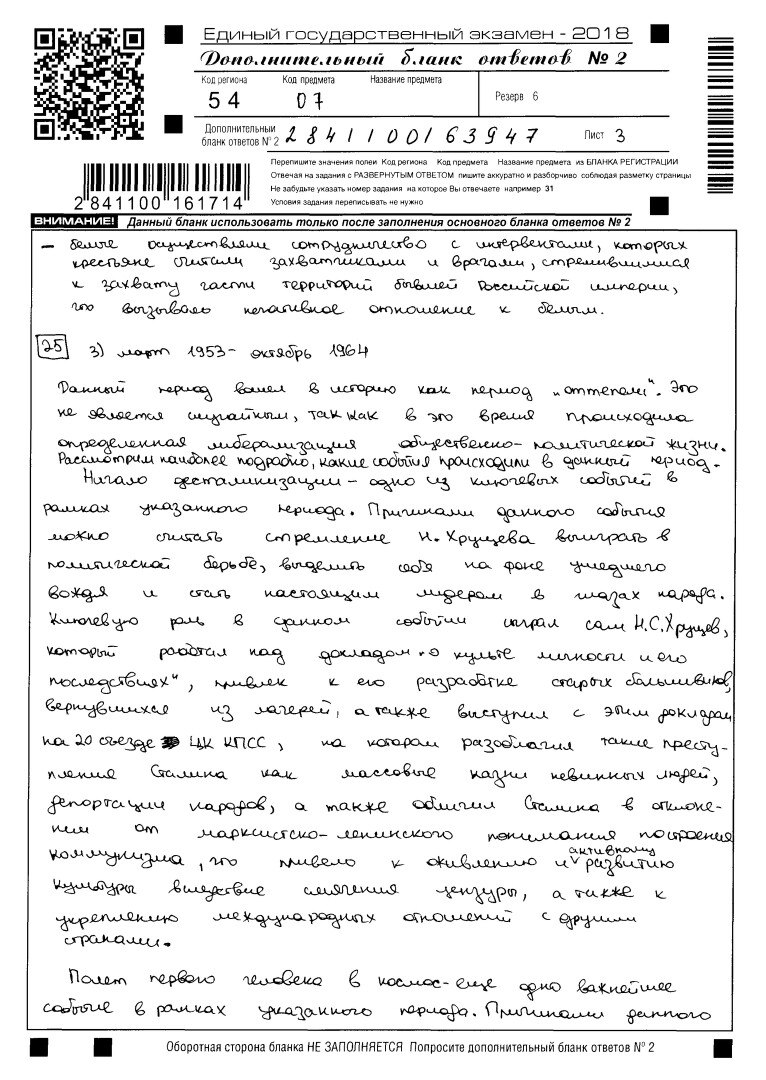 Единый государственный экзамен - 2018
Дополнительный бланк ответов № 2
Код региона Код предмета Название предмета
54 07
Резерв 6
Дополнительный бланк ответов № 2 2841100163947 Лист 3
Перепишите значения полей Код региона Код предмета Название предмета из БЛАНКА РЕГИСТРАЦИИ
Отвечая на задания с РАЗВЕРНУТЫМ ОТВЕТОМ пишите аккуратно и разборчиво соблюдая разметку страницы
Не забудьте указать номер задания на которое Вы отвечаете например 31
Условия задания переписывать не нужно
2 841100 161714
ВНИМАНИЕ! Данный бланк использовать только после заполнения основного бланка ответов № 2
– белые осуществляли сотрудничество с интервентами, которых
крестьяне считали захватчиками и врагами, стремившимися
к захвату части территорий бывшей Российской империи,
что вызывало негативное отношение к белым.
25 3) март 1953- октябрь 1964
Данный период вошел в историю как период „оттепели". Это
не является случайным, так как в это время происходила
определенная либерализация общественно-политической жизни.
Рассмотрим наиболее подробно, какие события происходили в данный период.
Начало десталинизации – одно из ключевых событий в
рамках указанного периода. Причинами данного события
можно считать стремление Н. Хрущева выиграть в
политической борьбе, выделить себя на фоне ушедшего
вождя и стать настоящим лидером в глазах народа.
Ключевую роль в данном событии сыграл сам Н.С.Хрущев,
который работал над докладом „о культе личности и его
последствиях", привлек к его разработке старых большевиков,
вернувшихся из лагерей, а также выступил с этим докладом
на 20 съезде ЦК КПСС, на котором разоблачил такие престу-
пления Сталина как массовые казни невинных людей,
депортации народов, а также обличил Сталина в отклоне-
нии от марксистско-ленинского понимания построения
коммунизма, что привело к оживлению и активному развитию
культуры вследствие смягчения цензуры, а также к
укреплению международных отношений с другими
странами.
Полет первого человека в космос-еще одно важнейшее
событие в рамках указанного периода. Причинами данного
Оборотная сторона бланка НЕ ЗАПОЛНЯЕТСЯ Попросите дополнительный бланк ответов № 2